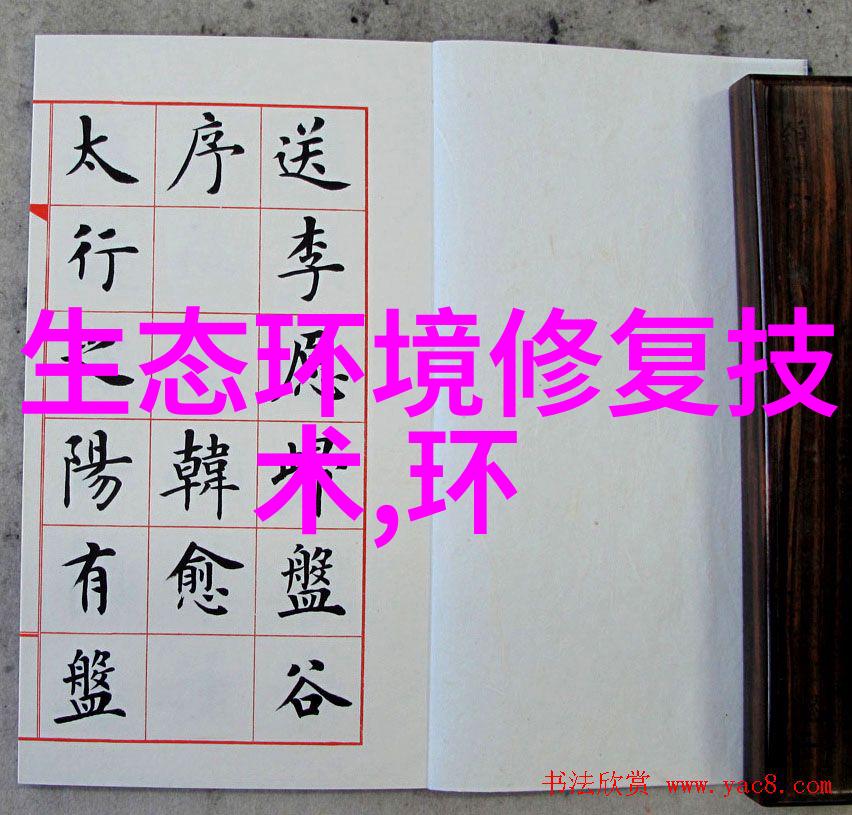 送李愿盤谷
序韓愈
太行之陽有盤
生态环境修复技
术,环
书法欣赏 www.yac8.com